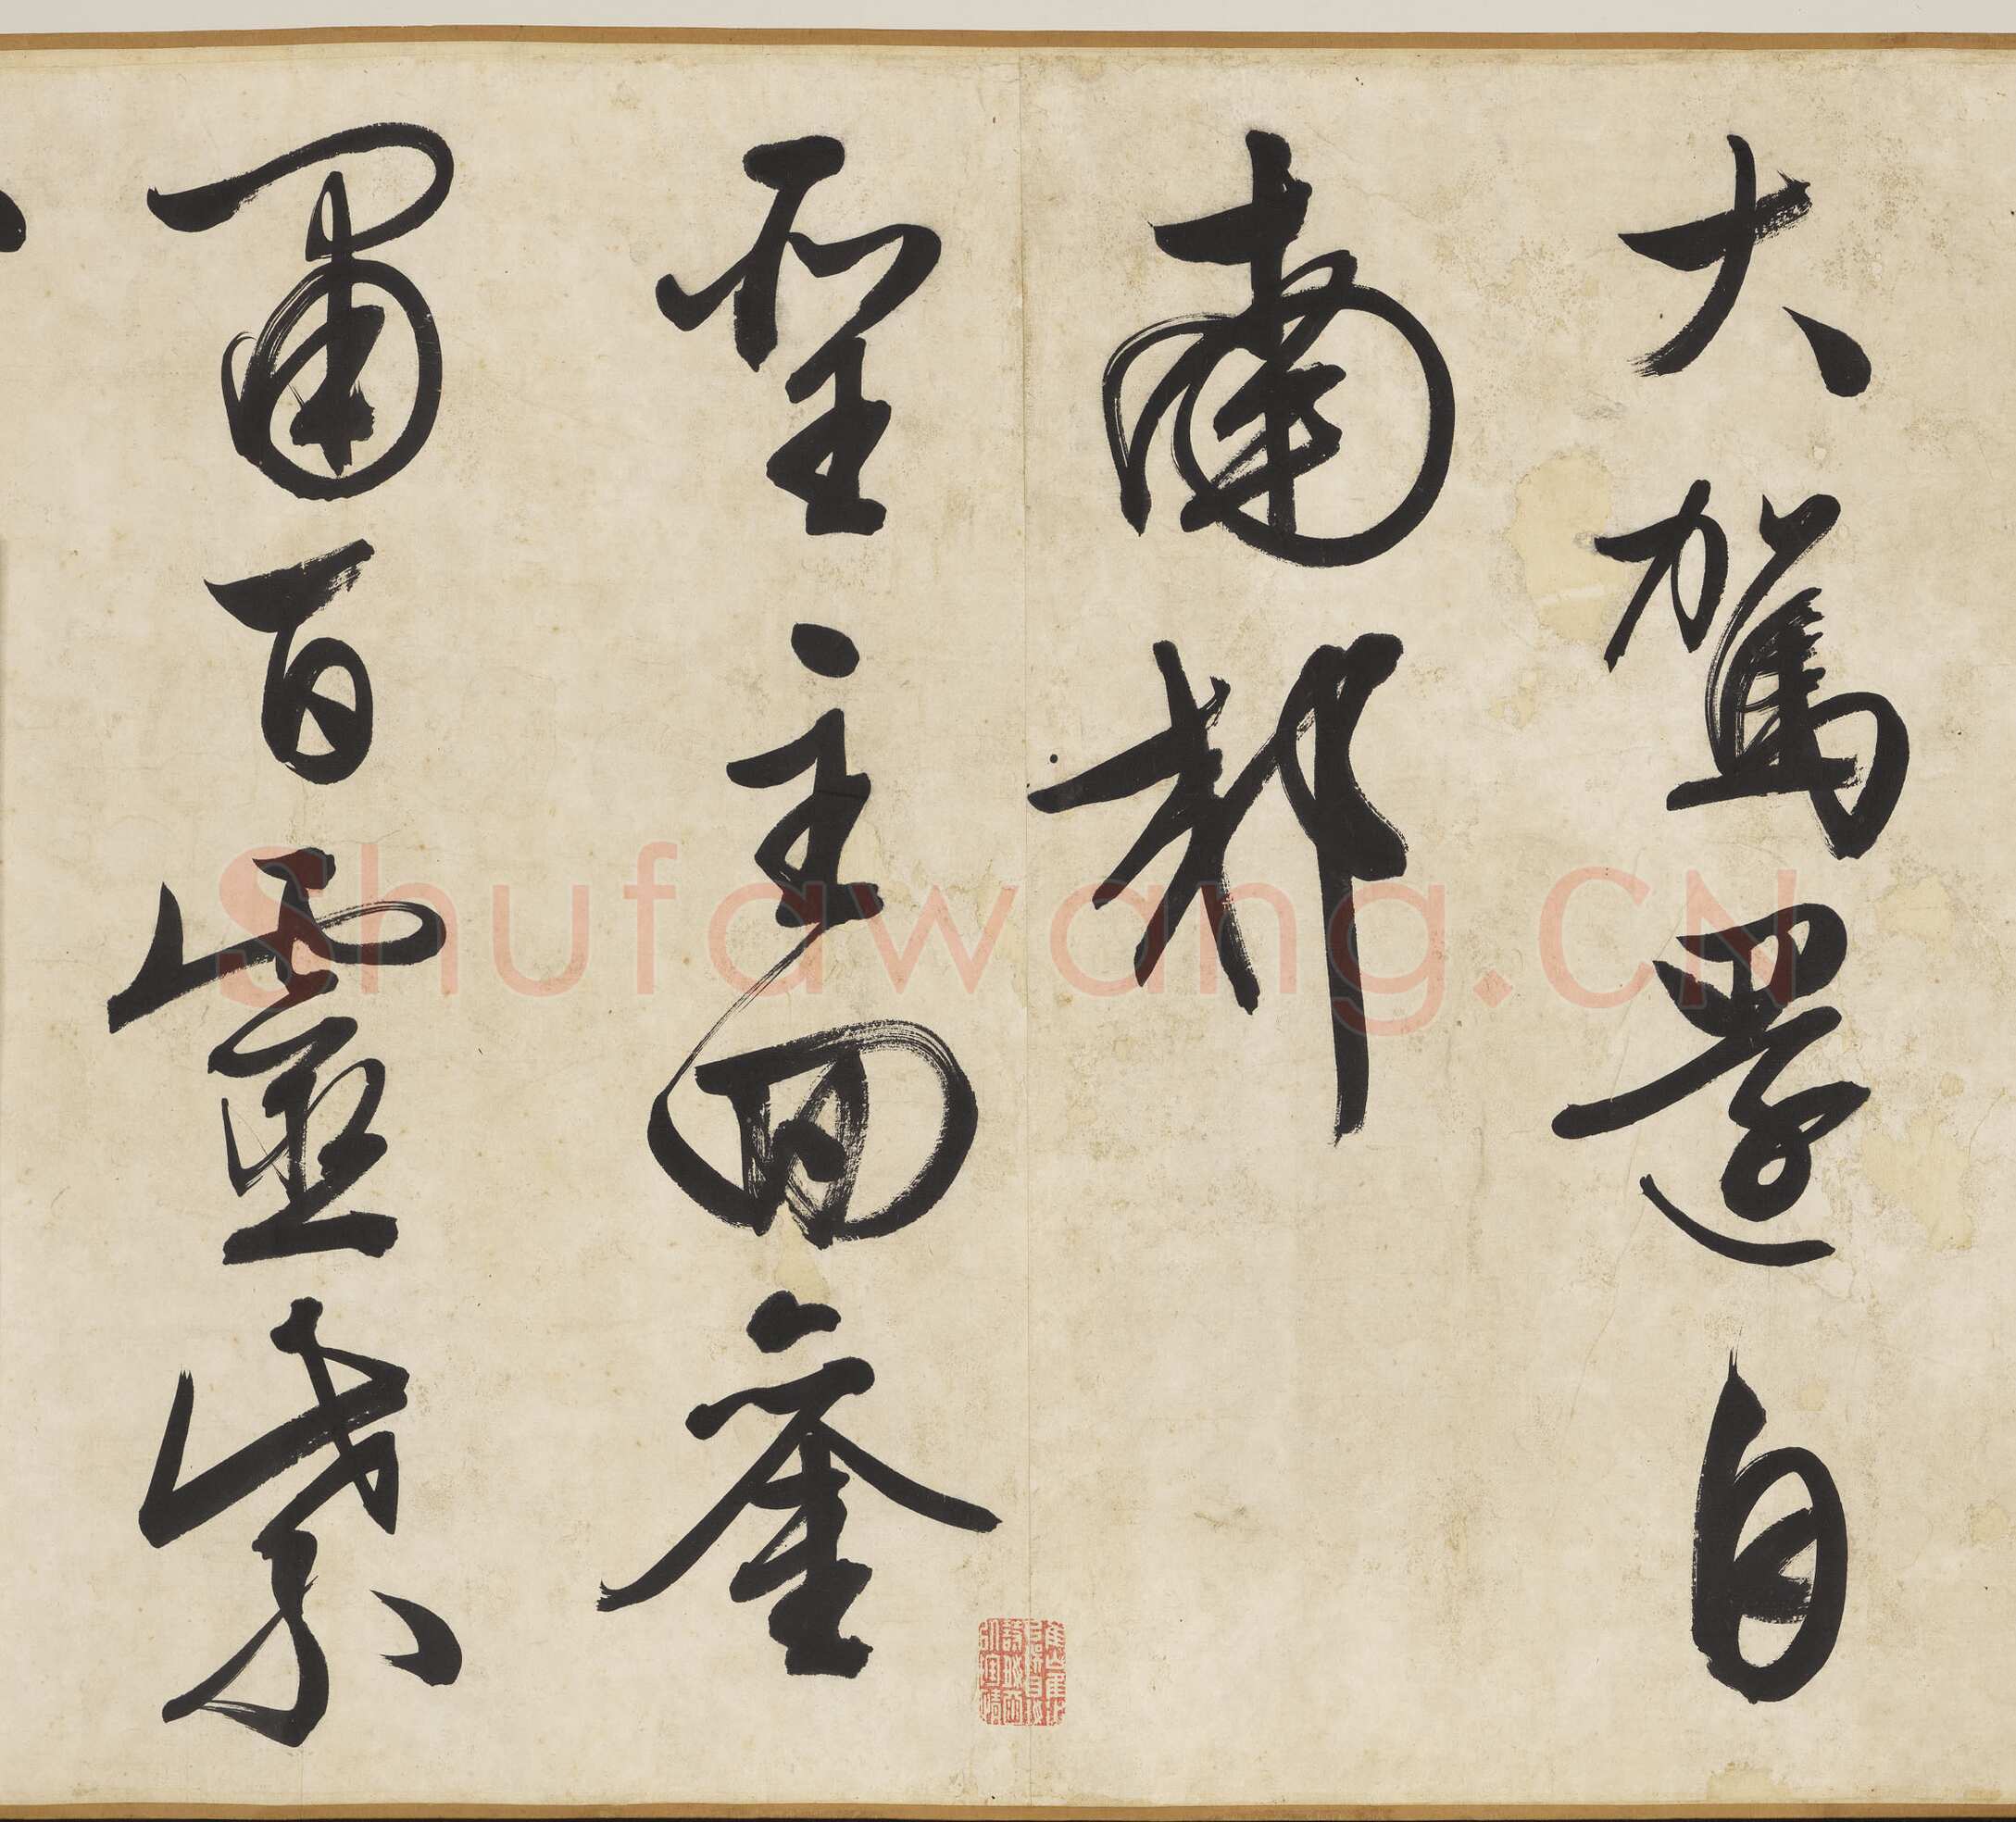 大駕還自
南郊
聖主回鑾
肅百靈紫
Shufawang.CN